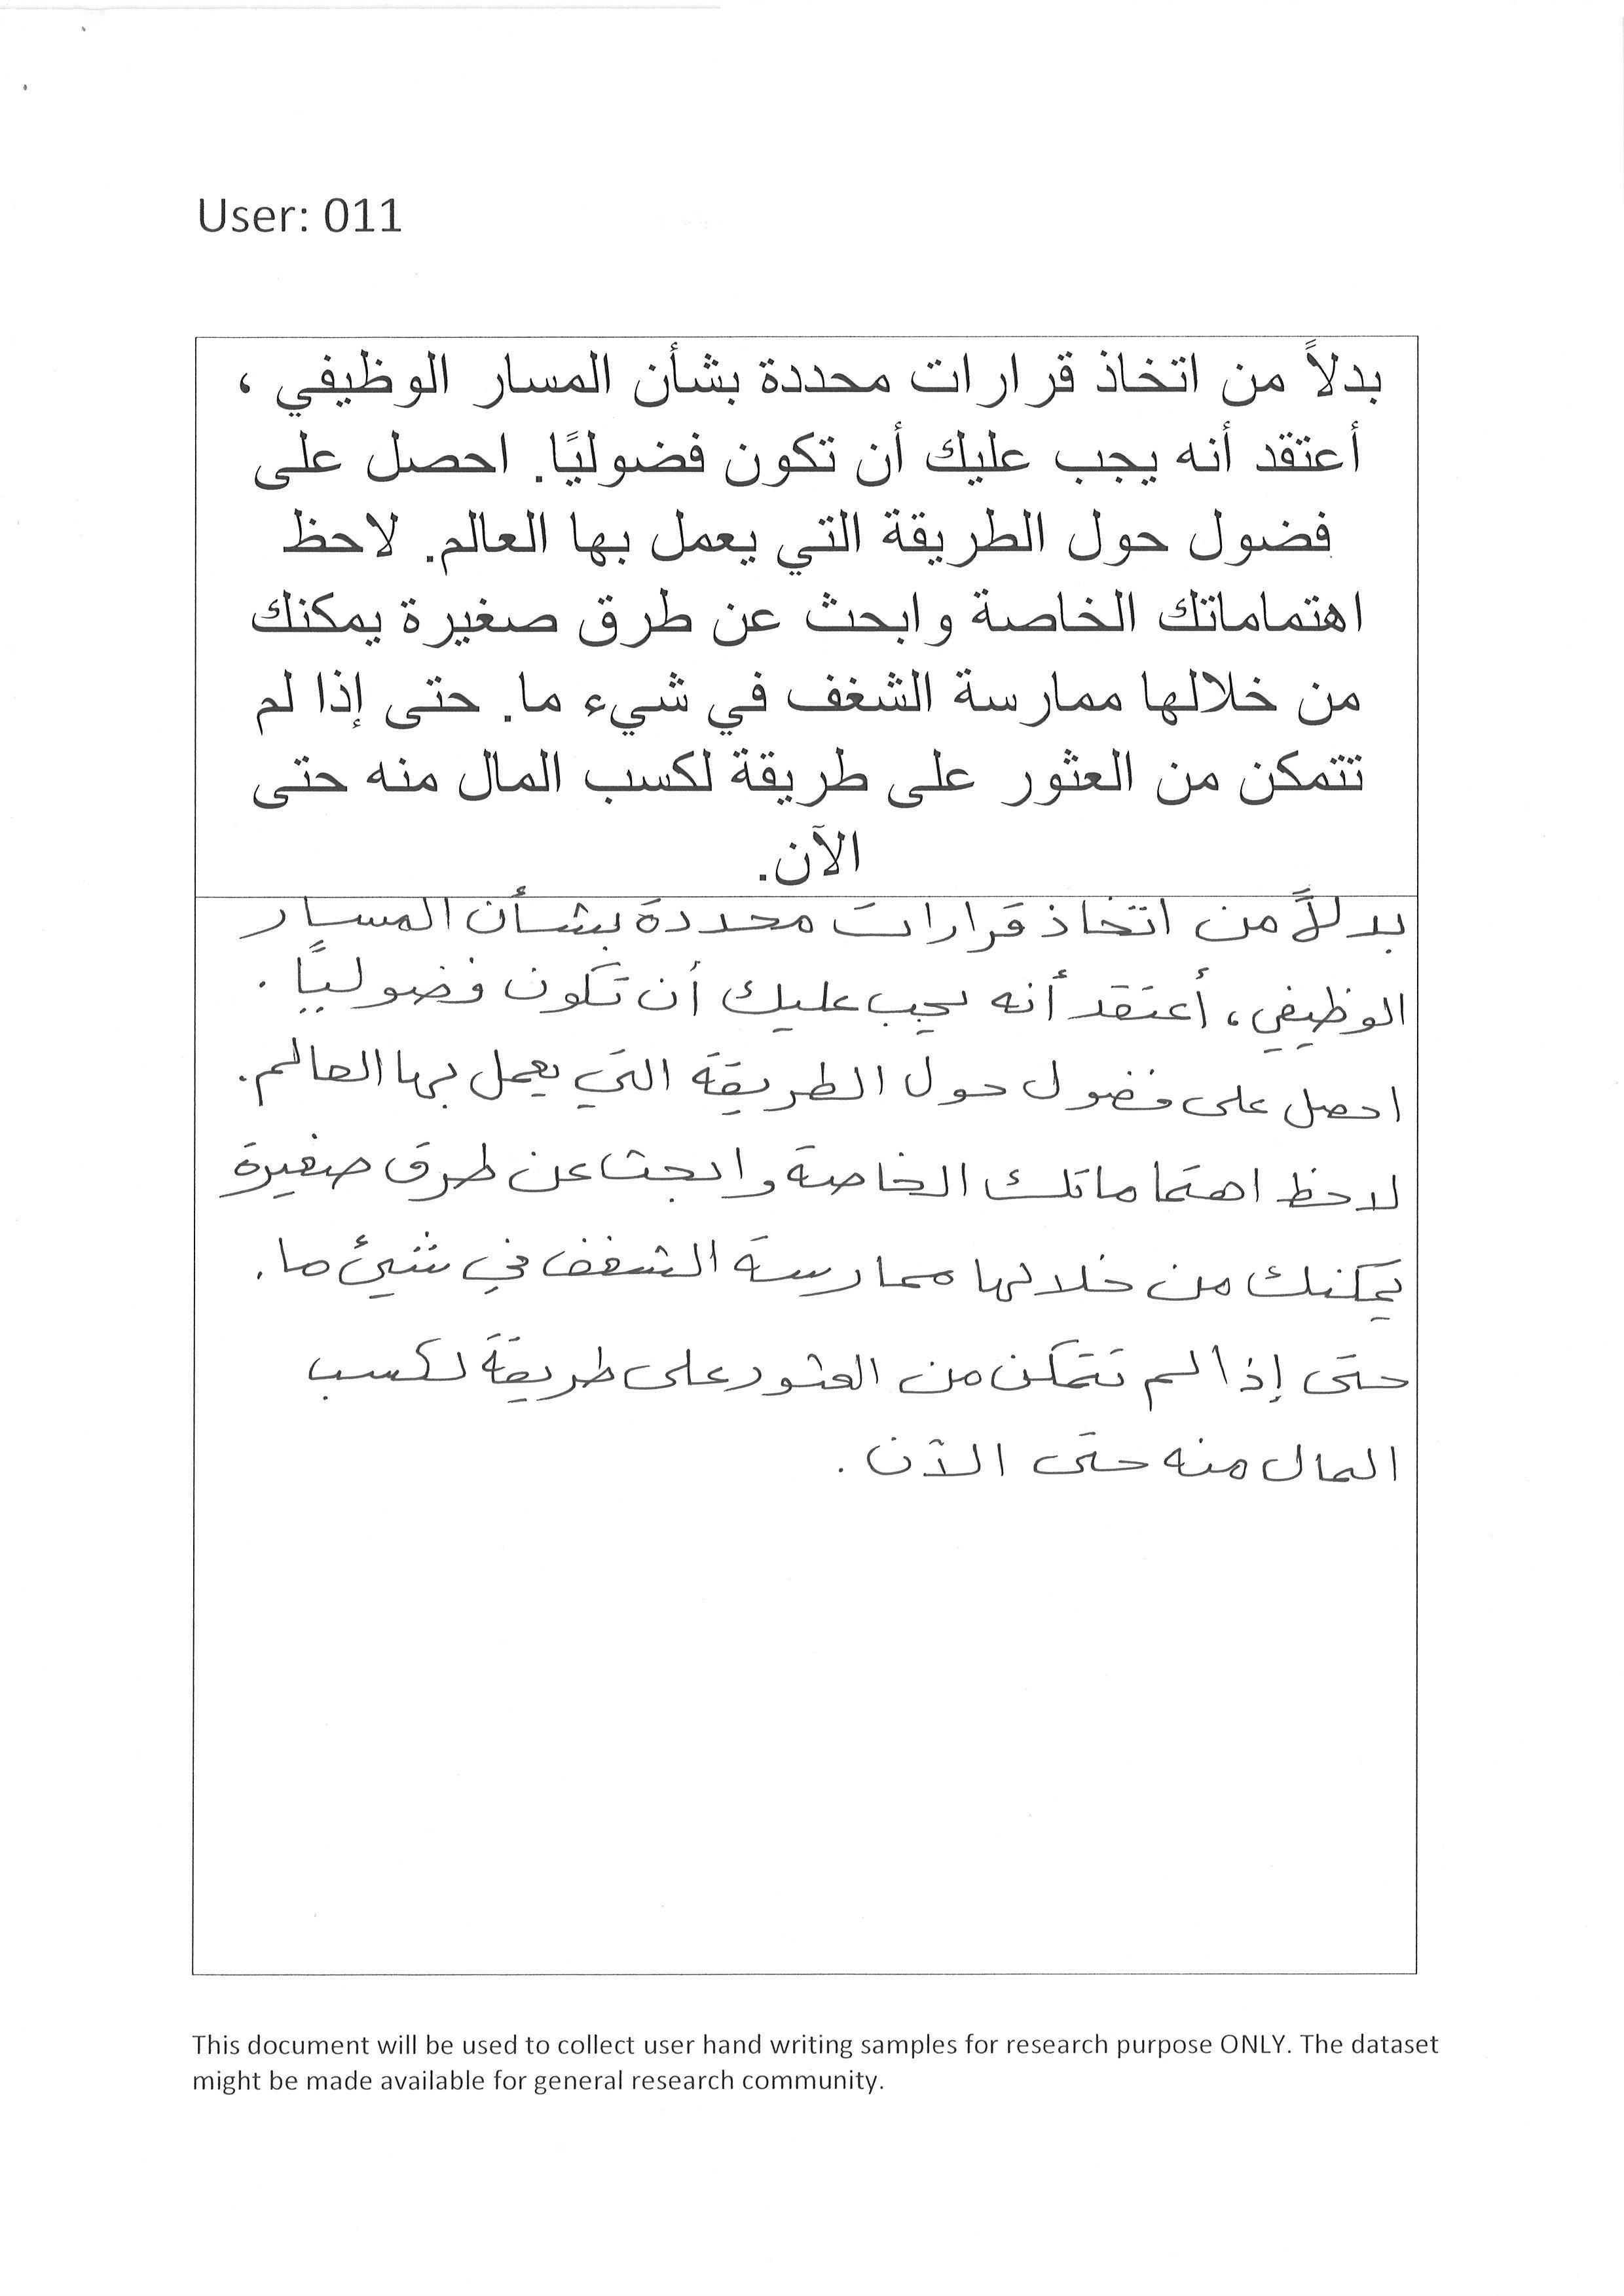 User: 011
بدلاً من اتخاذ قرارات محددة بشأن المسار الوظيفي ،
أعتقد أنه يجب عليك أن تكون فضوليًا. احصل على
فضول حول الطريقة التي يعمل بها العالم. لاحظ
اهتماماتك الخاصة وابحث عن طرق صغيرة يمكنك
من خلالها ممارسة الشغف في شيء ما. حتى إذا لم
تتمكن من العثور على طريقة لكسب المال منه حتى
الآن.
بدلاً من اتخاذ قرارات محددة بشأن المسار
الوظيفي، أعتقد أنه يجب عليك أن تكون فضوليًا .
احصل على فضول حول الطريقة التي يعمل بها العالم.
لاحظ اهتماماتك الخاصة وابحث عن طرق صغيرة
يمكنك من خلالها ممارسة الشغف في شيئ ما.
حتى إذا لم تتمكن من العثور على طريقة لكسب
المال منه حتى الآن .
This document will be used to collect user hand writing samples for research purpose ONLY. The dataset
might be made available for general research community.